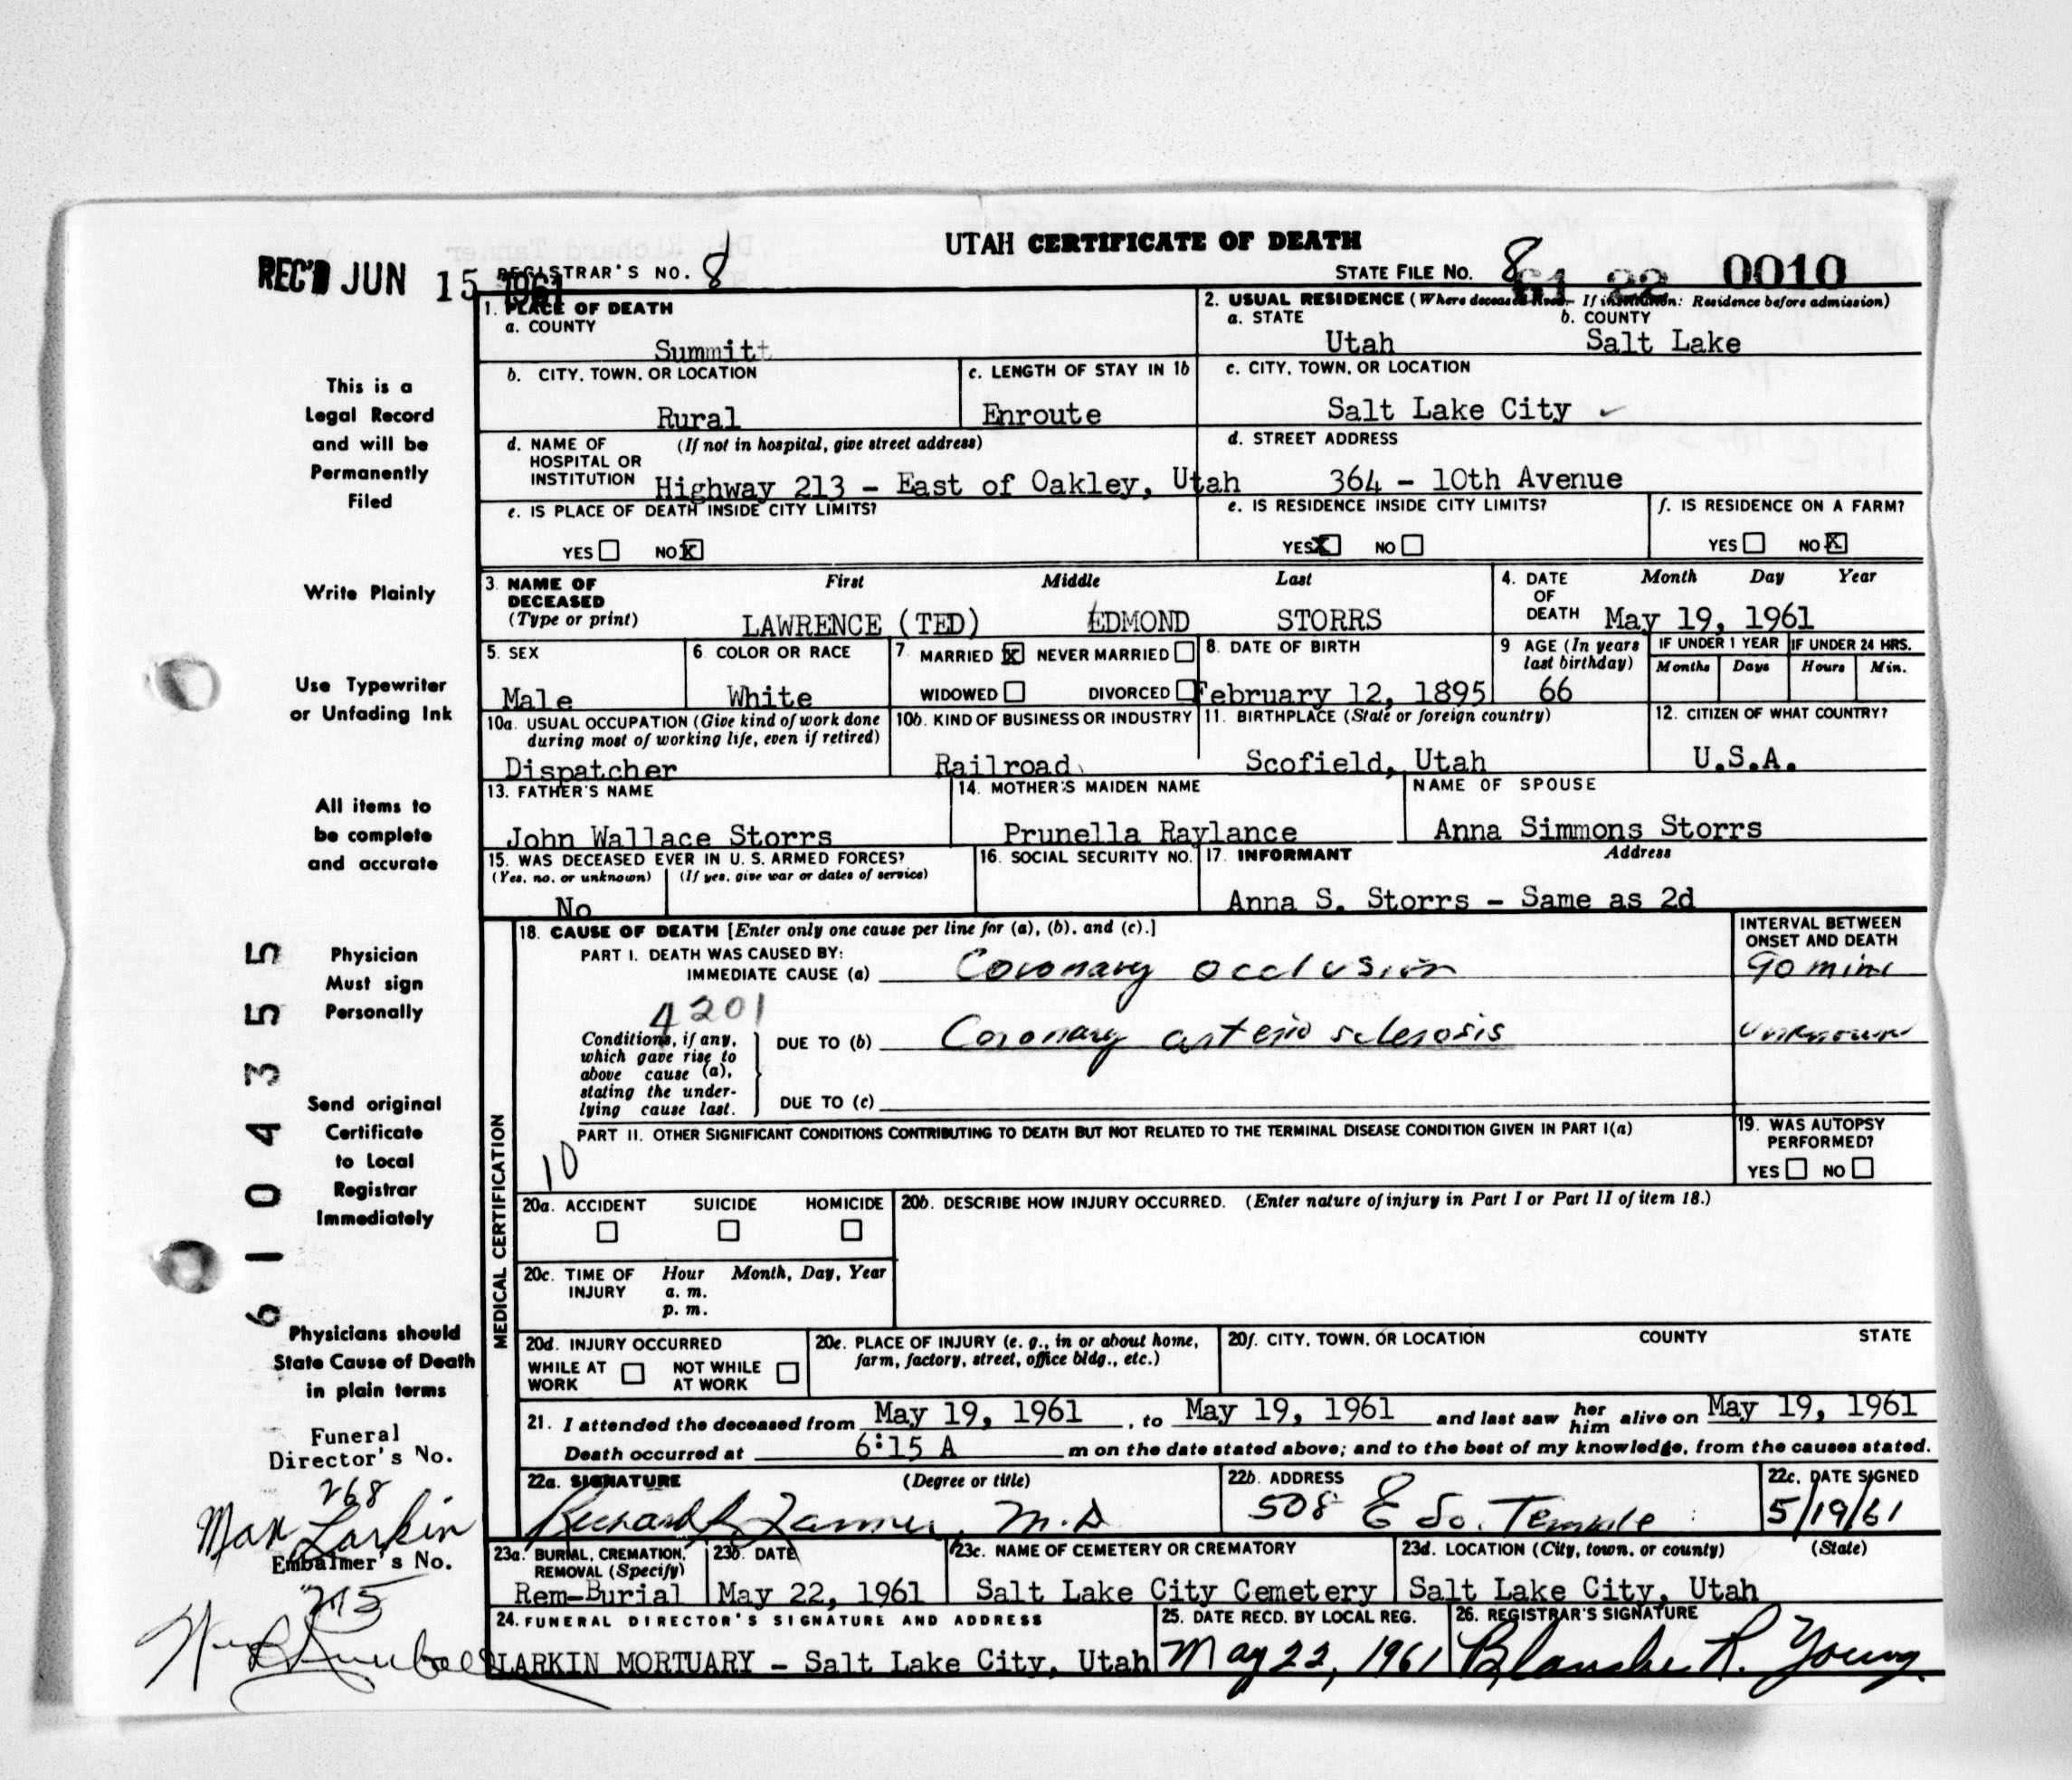 UTAH CERTIFICATE OF DEATH
REC'D JUN 15 1961
REGISTRAR'S NO. 8
STATE FILE NO. 8 61 22 0010
1. PLACE OF DEATH
a. COUNTY
Summitt
2. USUAL RESIDENCE (Where deceased lived. If institution: Residence before admission)
a. STATE
Utah
b. COUNTY
Salt Lake
b. CITY, TOWN, OR LOCATION
Rural
c. LENGTH OF STAY IN 1b
Enroute
c. CITY, TOWN, OR LOCATION
Salt Lake City
d. NAME OF HOSPITAL OR INSTITUTION
(If not in hospital, give street address)
Highway 213 - East of Oakley, Utah
d. STREET ADDRESS
364 - 10th Avenue
e. IS PLACE OF DEATH INSIDE CITY LIMITS?
YES NO X
e. IS RESIDENCE INSIDE CITY LIMITS?
YES X NO
f. IS RESIDENCE ON A FARM?
YES NO X
3. NAME OF DECEASED
(Type or print)
First Middle Last
LAWRENCE (TED) EDMOND STORRS
4. DATE OF DEATH
Month Day Year
May 19, 1961
5. SEX
Male
6. COLOR OR RACE
White
7. MARRIED X NEVER MARRIED
WIDOWED DIVORCED
8. DATE OF BIRTH
February 12, 1895
9 AGE (In years last birthday)
66
IF UNDER 1 YEAR
Months Days
IF UNDER 24 HRS.
Hours Min.
10a. USUAL OCCUPATION (Give kind of work done during most of working life, even if retired)
Dispatcher
10b. KIND OF BUSINESS OR INDUSTRY
Railroad
11. BIRTHPLACE (State or foreign country)
Scofield, Utah
12. CITIZEN OF WHAT COUNTRY?
U.S.A.
13. FATHER'S NAME
John Wallace Storrs
14. MOTHER'S MAIDEN NAME
Prunella Raylance
NAME OF SPOUSE
Anna Simmons Storrs
15. WAS DECEASED EVER IN U. S. ARMED FORCES?
(Yes, no, or unknown) (If yes, give war or dates of service)
No
16. SOCIAL SECURITY NO.
17. INFORMANT Address
Anna S. Storrs - Same as 2d
MEDICAL CERTIFICATION
18. CAUSE OF DEATH [Enter only one cause per line for (a), (b), and (c).]
INTERVAL BETWEEN ONSET AND DEATH
PART I. DEATH WAS CAUSED BY:
IMMEDIATE CAUSE (a) Coronary occlusion
90 min
4201
Conditions, if any, which gave rise to above cause (a), stating the underlying cause last.
DUE TO (b) Coronary arterio sclerosis
Unknown
DUE TO (c)
PART II. OTHER SIGNIFICANT CONDITIONS CONTRIBUTING TO DEATH BUT NOT RELATED TO THE TERMINAL DISEASE CONDITION GIVEN IN PART I(a)
10
19. WAS AUTOPSY PERFORMED?
YES NO
20a. ACCIDENT SUICIDE HOMICIDE
20b. DESCRIBE HOW INJURY OCCURRED. (Enter nature of injury in Part I or Part II of item 18.)
20c. TIME OF INJURY
Hour Month, Day, Year
a. m.
p. m.
20d. INJURY OCCURRED
WHILE AT WORK NOT WHILE AT WORK
20e. PLACE OF INJURY (e. g., in or about home, farm, factory, street, office bldg., etc.)
20f. CITY, TOWN, OR LOCATION COUNTY STATE
21. I attended the deceased from May 19, 1961, to May 19, 1961 and last saw her him alive on May 19, 1961
Death occurred at 6:15 A m on the date stated above; and to the best of my knowledge, from the causes stated.
22a. SIGNATURE (Degree or title)
Richard R Tanner, M.D.
22b. ADDRESS
508 E So. Temple
22c. DATE SIGNED
5/19/61
23a. BURIAL, CREMATION, REMOVAL (Specify)
Rem-Burial
23b. DATE
May 22, 1961
23c. NAME OF CEMETERY OR CREMATORY
Salt Lake City Cemetery
23d. LOCATION (City, town, or county) (State)
Salt Lake City, Utah
24. FUNERAL DIRECTOR'S SIGNATURE AND ADDRESS
LARKIN MORTUARY - Salt Lake City, Utah
25. DATE RECD. BY LOCAL REG.
May 22, 1961
26. REGISTRAR'S SIGNATURE
Blanche R. Young
This is a
Legal Record
and will be
Permanently
Filed
Write Plainly
Use Typewriter
or Unfading Ink
All items to
be complete
and accurate
Physician
Must sign
Personally
Send original
Certificate
to Local
Registrar
Immediately
Physicians should
State Cause of Death
in plain terms
61043555
Funeral
Director's No.
268
Max Larkin
Embalmer's No.
275